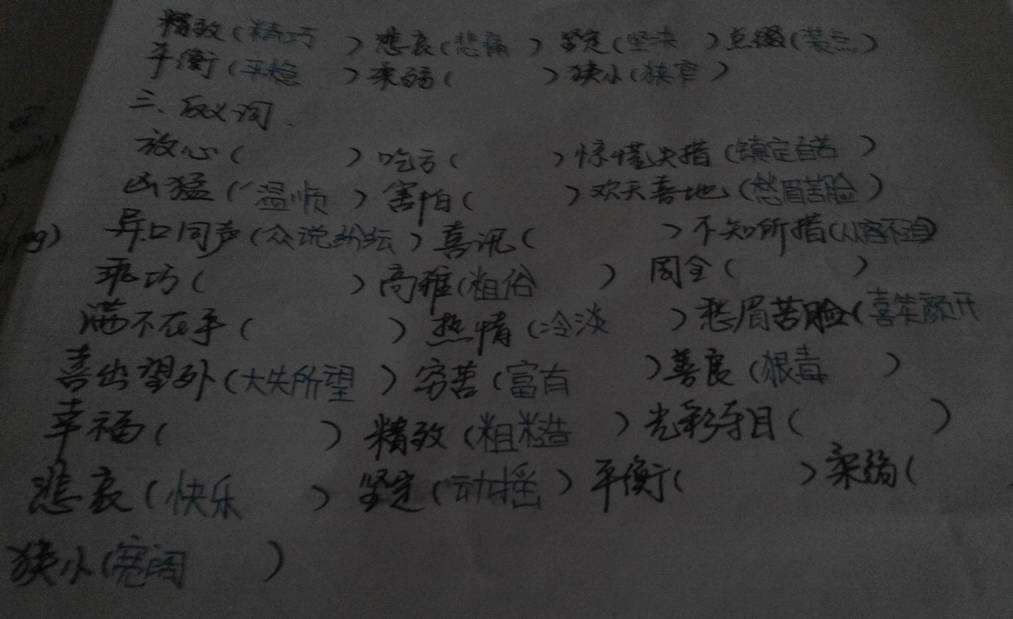 精致(精巧)悲哀(悲痛)坚定(坚决)点缀(装点)
平衡(平稳)柔弱( )狭小(狭窄)
三、反义词.
放心( )吃亏( )惊慌失措(镇定自若)
凶猛(温顺)害怕( )欢天喜地(愁眉苦脸)
异口同声(众说纷纭)喜讯( )不知所措(从容不迫)
乖巧( )高雅(粗俗)周全( )
满不在乎( )热情(冷淡)愁眉苦脸(喜笑颜开
喜出望外(大失所望)穷苦(富有)善良(狠毒)
幸福( )精致(粗糙)光彩夺目( )
悲哀(快乐)坚定(动摇)平衡( )柔弱(
狭小(宽阔)